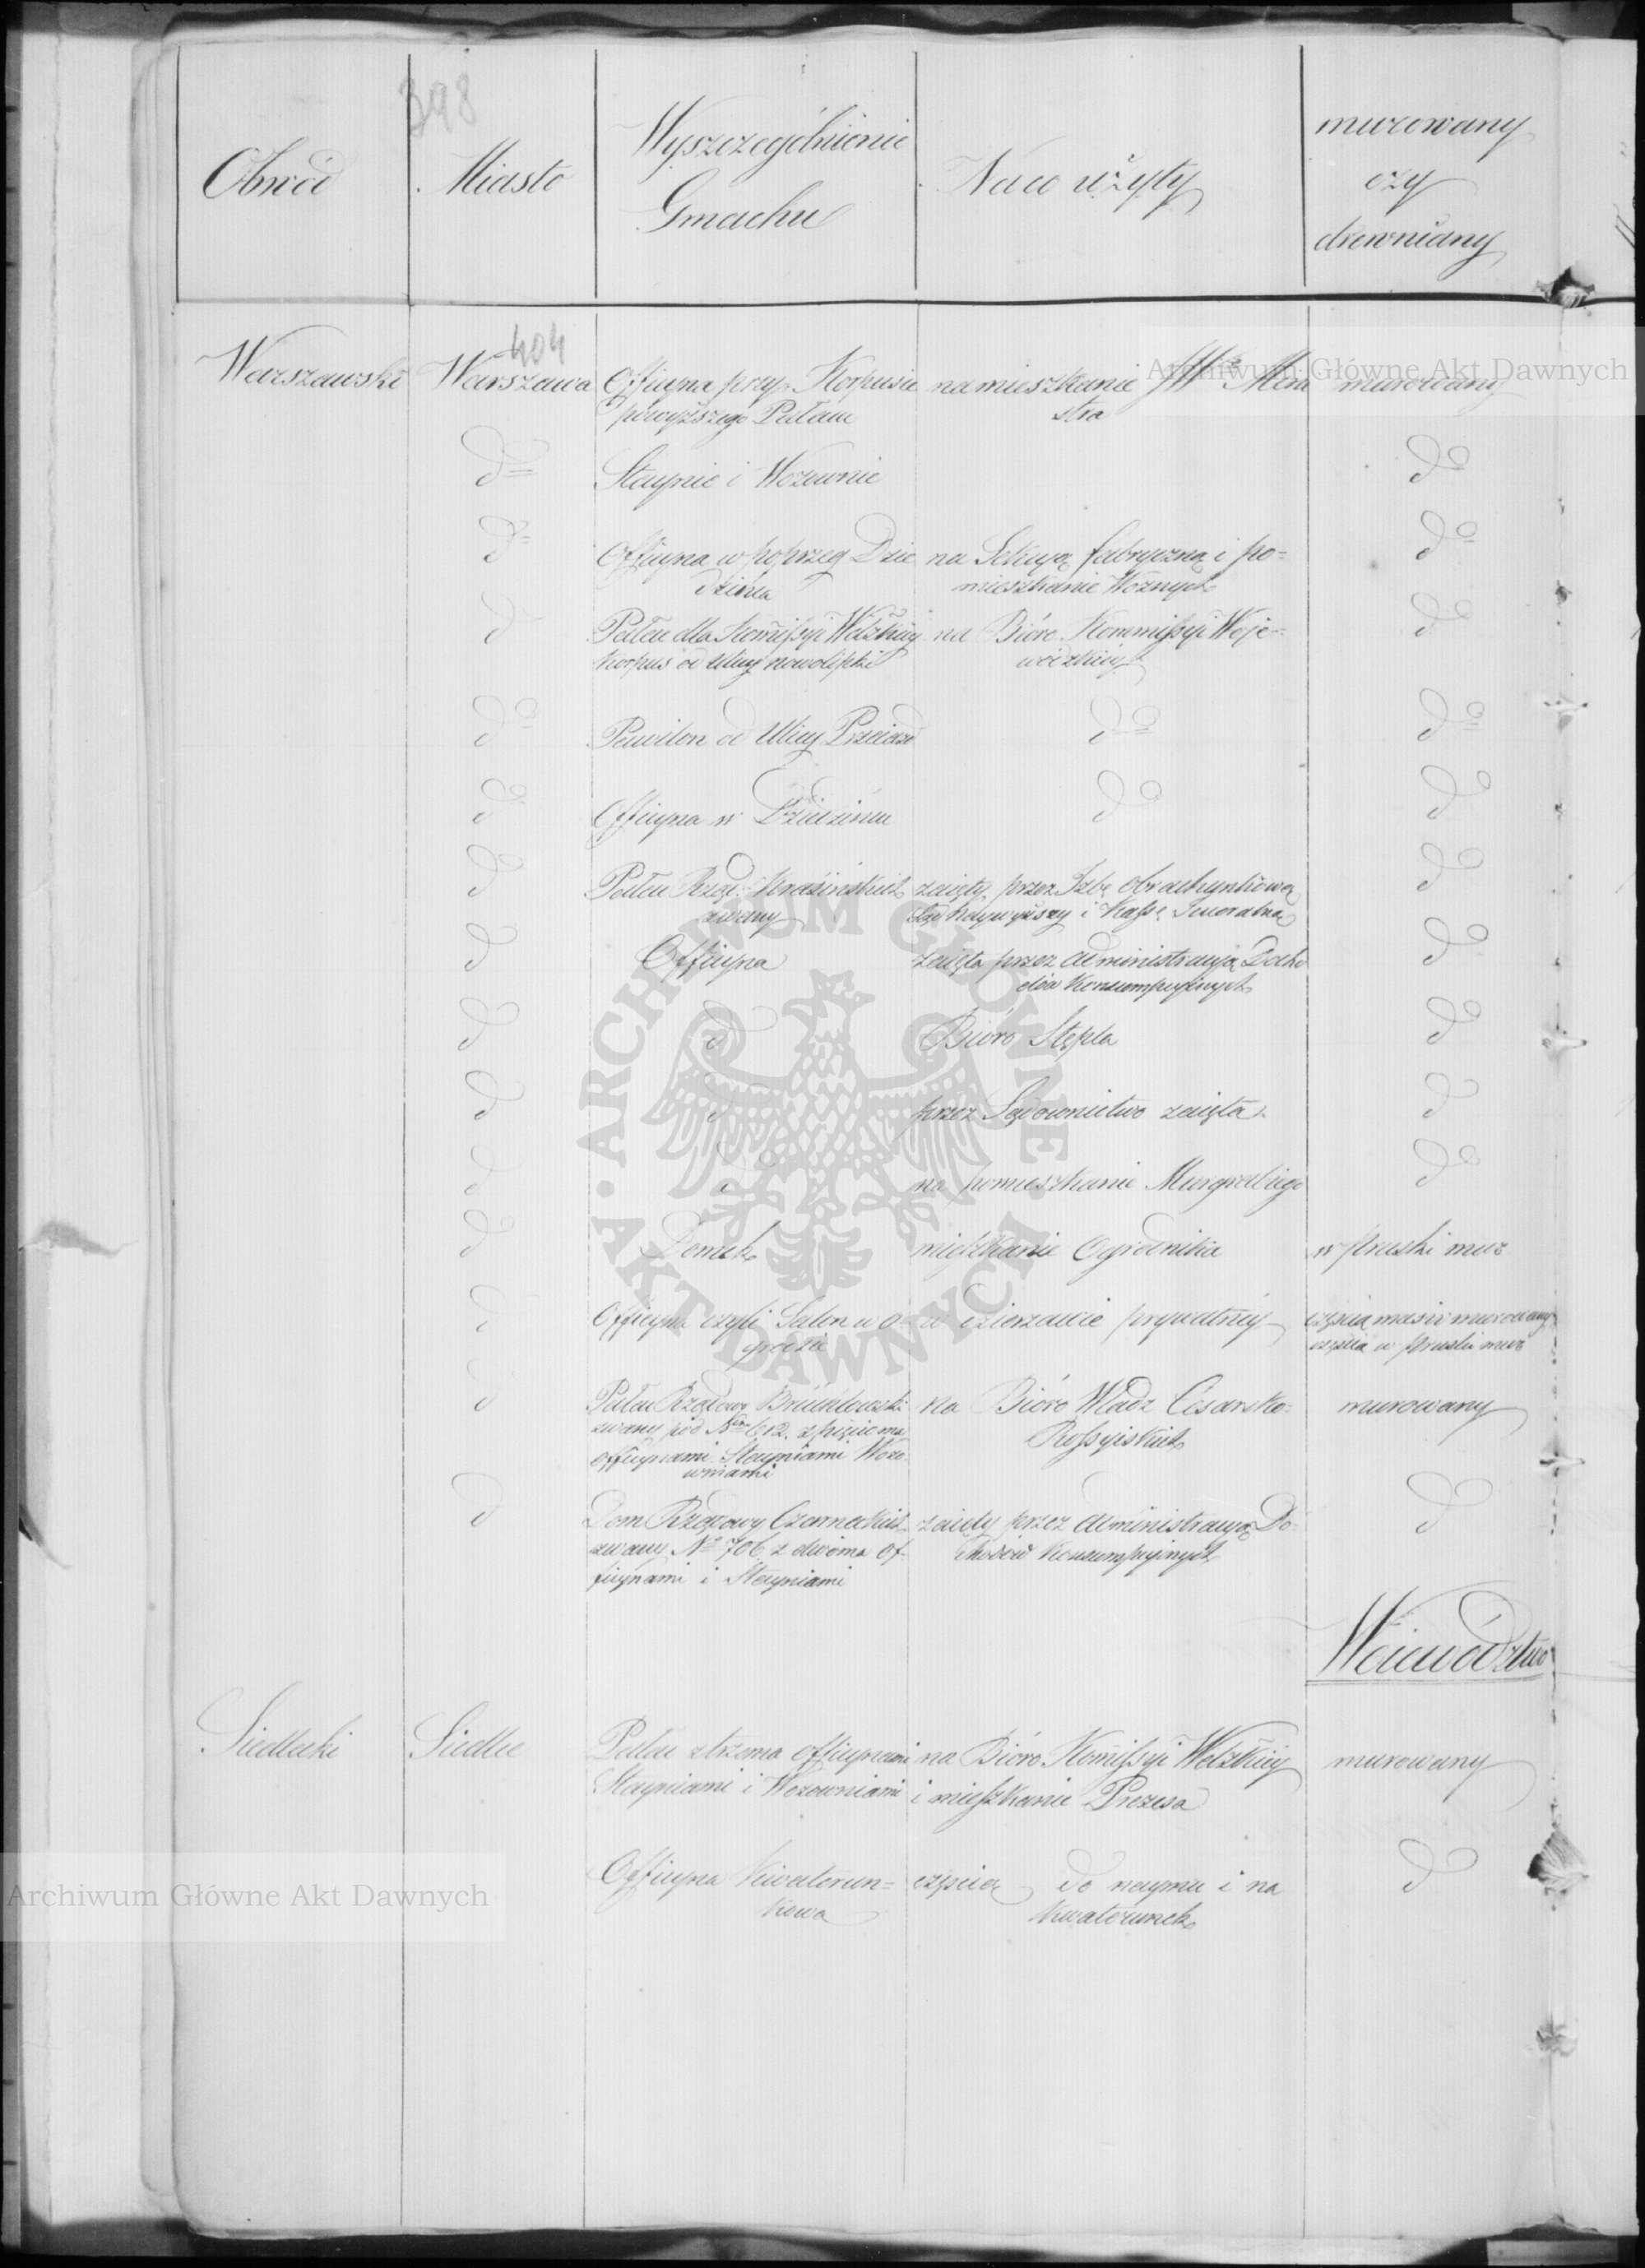 398
Obwód
Miasto
Wyszczególnienie
Gmachu
Na co użyty
murowany
czy
drewniany
404
Warszawski
Warszawa
Officyna przy Korpusie
powyższego Pałacu
na mieszkanie JW Mini
stra
murowany
do
Staynie i Wozownie
do
do
Officyna w poprzeg Dzie
dzińca
na Sekcyą fabryczną i po=
mieszkanie Woznych
do
d
Pałac dla Kommissyi Wdzkiey
Korpus od Ulicy nowolipki
na Bióro Kommissyi Woje=
wódzkiey
do
do
Pawilon od Ulicy Przeiazd
do
do
do
Officyna w Dziedzińcu
do
do
do
Pałac Rząd: Krasińskich
zwany
zaięty przez Izbę Obrachunkową
Sąd Naywyższy i Kassę Generalną
do
d
Officyna
zaięta przez Administracyą Docho
dów Konsumpcyinych
do
d
d
Bióro Stępla
do
d
d
przez Sądownictwo zaięta
d
d
d
na pomieszkanie Murgrabiego
do
d
Domek
mieszkanie Ogrodnika
w pruski mur
d
Officyna czyli Salon w o=
grodzie
w dzierzawie prywatney
częścią masiv murowany
częścią w pruski mur
d
Pałac Rządowy Brühlowski
zwany pod Nrem 612. z pięcioma
officynami Stayniami Wozo
wniami
na Bióro Władz Cesarsko=
Rossyiskich
murowany
d
Dom Rządowy Czarneckich
zwany No 706 z dwoma of=
ficynami i Stayniami
zaięty przez Administracyą Do=
chodów Konsumpcyinych
d
Woiewództwo
Siedlecki
Siedlce
Pałac z trzema officynami
Stayniami i Wozowniami
na Bióro Komissyi Wdzkiey
i mieszkanie Prezesa
murowany
Officyna Kwaterun=
kowa
częścią do naymu i na
Kwaterunek
do
Archiwum Główne Akt Dawnych
Archiwum Główne Akt Dawnych
ARCHIWUM GŁÓWNE AKT DAWNYCH